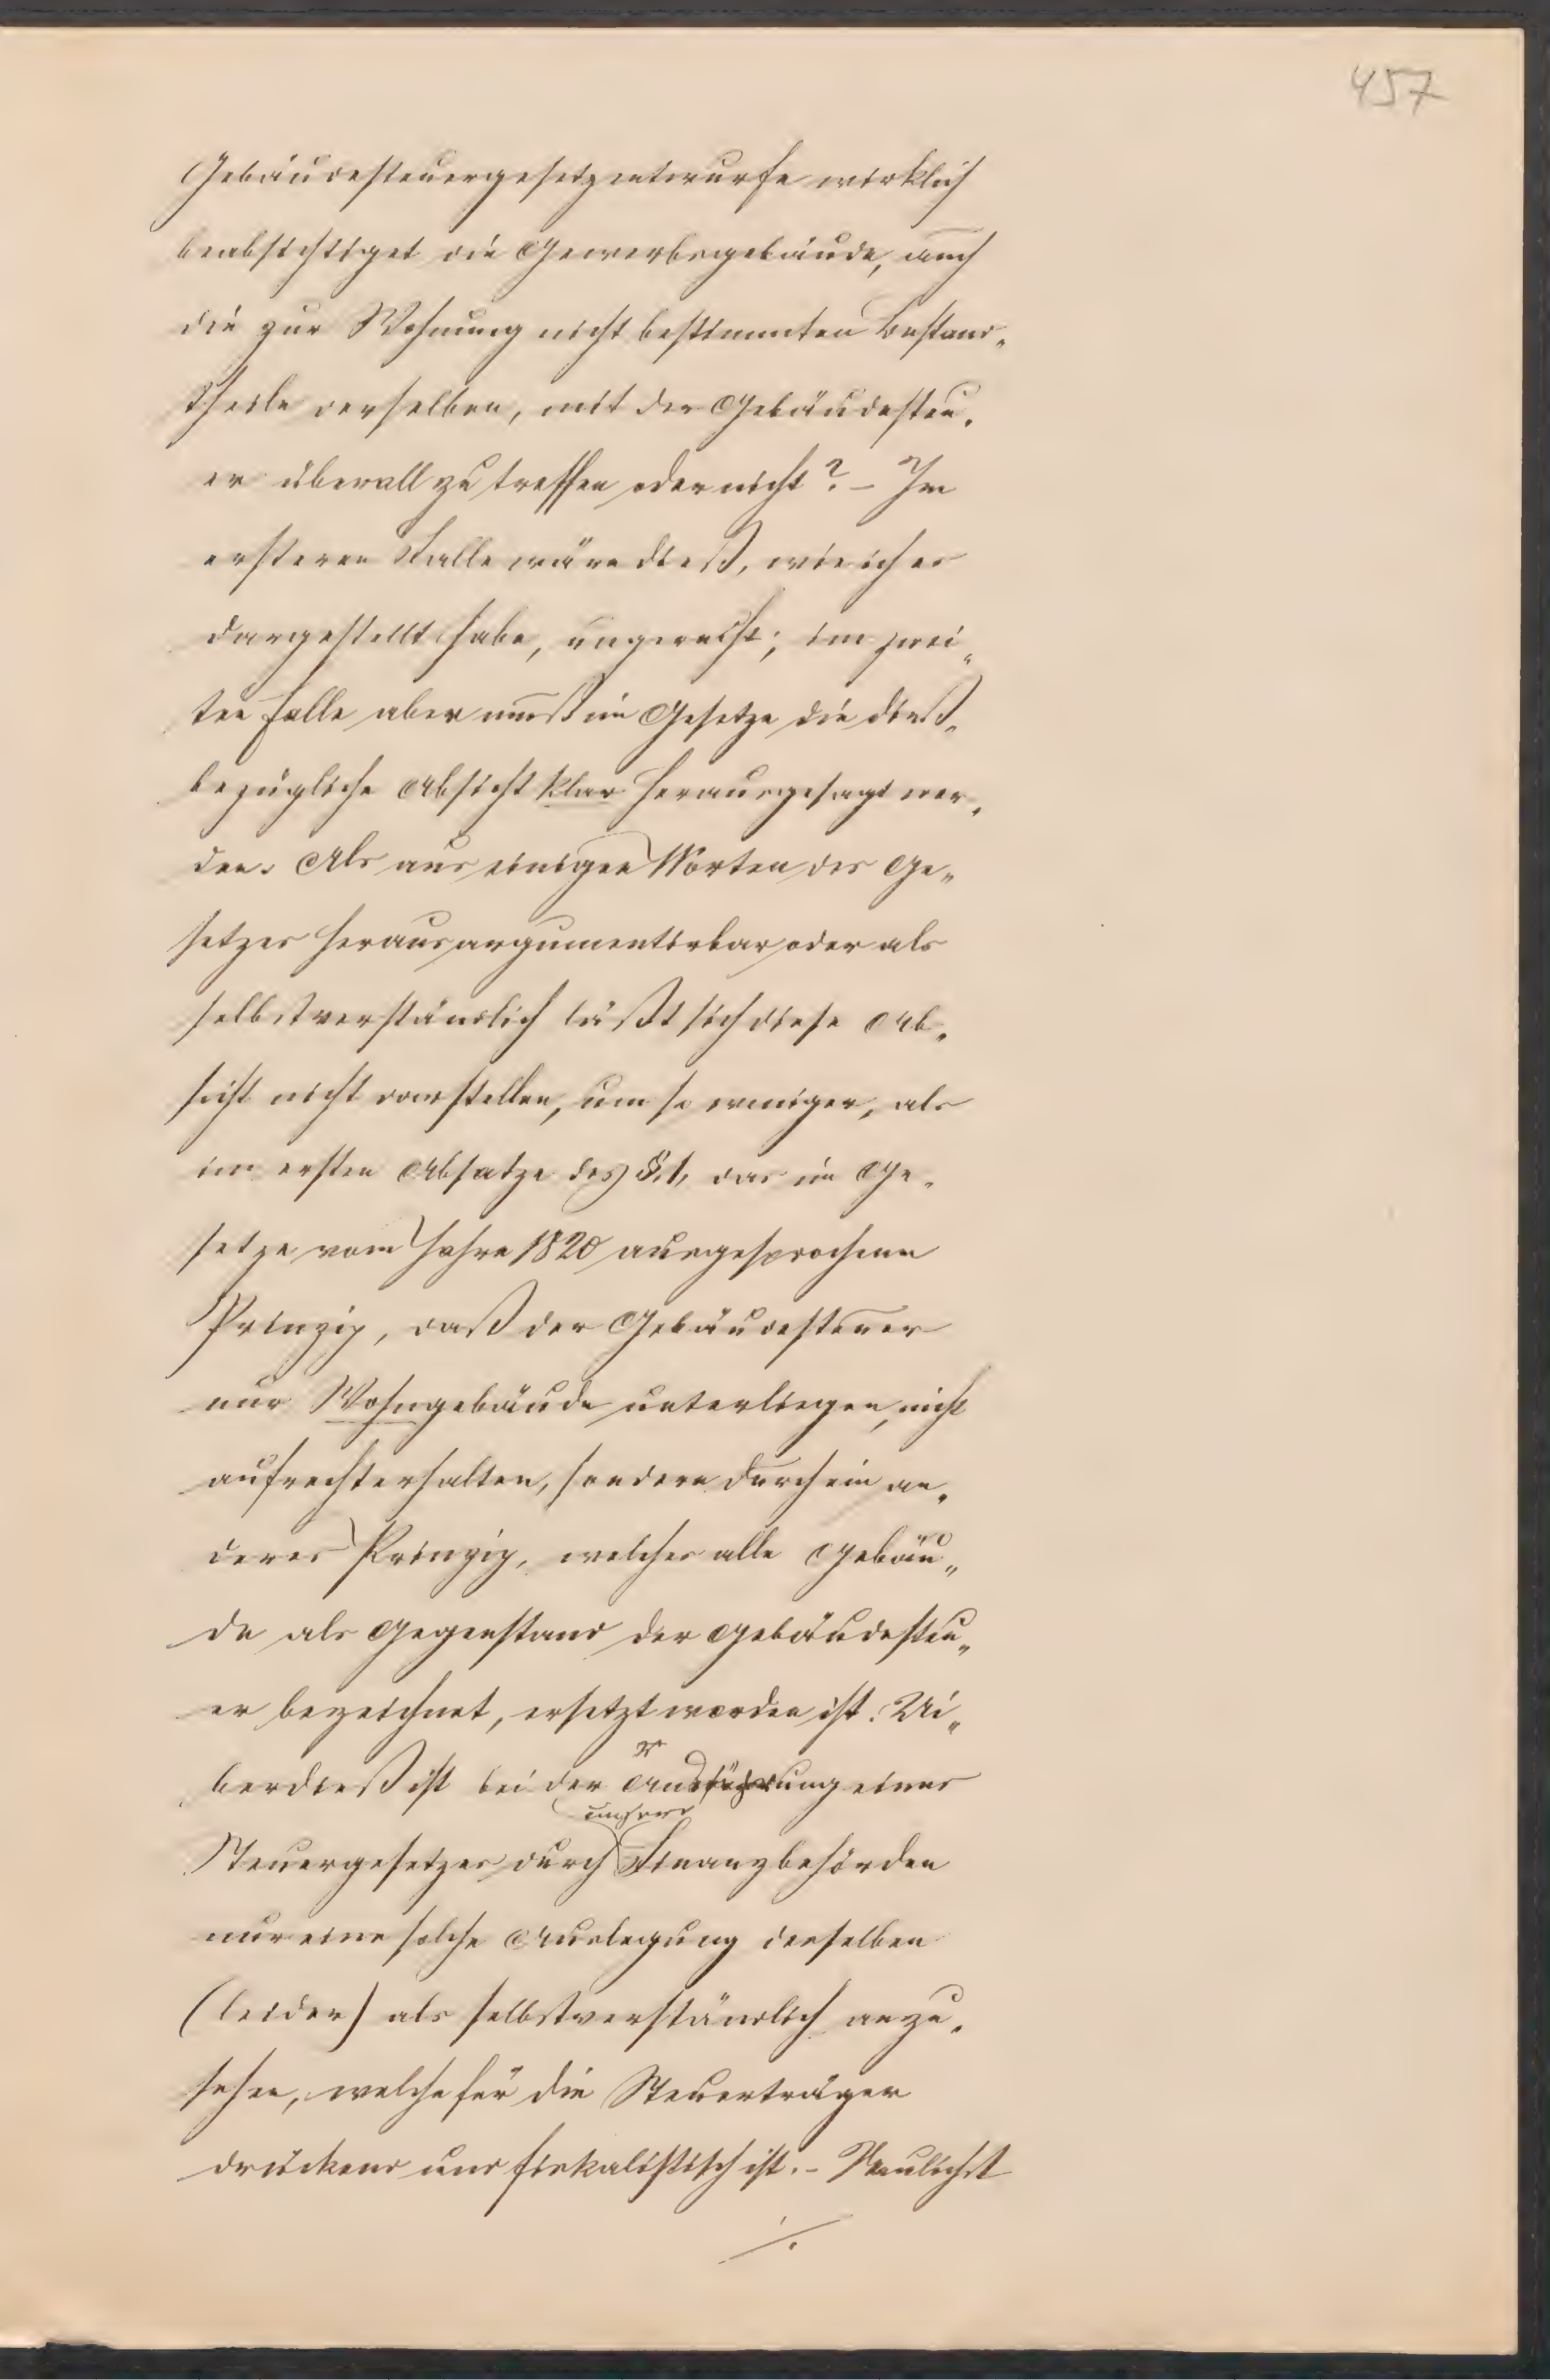 457
Gebäudesteuergesetzentwurfe wirklich
beabsichtiget die Gewerbsgebäude, auch
die zur Wohnung nicht bestimmten Bestand„
theile derselben, mit der Gebäudesteu„
er überall zu treffen oder nicht? – Im
ersteren Falle wäre dieß, wie ich es
dargestellt habe, ungerecht; im zwei„
ten Falle aber muß im Gesetze die dieß„
bezügliche Absicht klar herausgesagt wer„
den. Als aus einigen Worten des Ge„
setzes herausargumentirbar oder als
selbstverständlich läßt sich diese Ab„
sicht nicht darstellen, um so weniger, als
im ersten Absatze des §. 1, das im Ge„
setze vom Jahre 1820 ausgesprochene
Prinzip, daß der Gebäudesteuer
nur Wohngebäude unterliegen, nicht
aufrechterhalten, sondern durch ein an„
deres Prinzip, welches alle Gebäu„
de als Gegenstand der Gebäudesteu„
er bezeichnet, ersetzt worden ist. Ui„
berdieß ist bei der Ausführung eines
Steuergesetzes durch unsere Finanzbehörden
nur eine solche Auslegung desselben
(leider) als selbstverständlich anzu„
sehen, welche für die Steuerträger
drückend und fiskalistisch ist. – Neulichst
./.